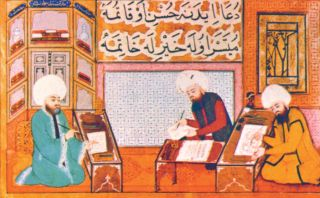 دعا ایدنه حسن اوقاتمه
میسر اوله خیرله خاتمه